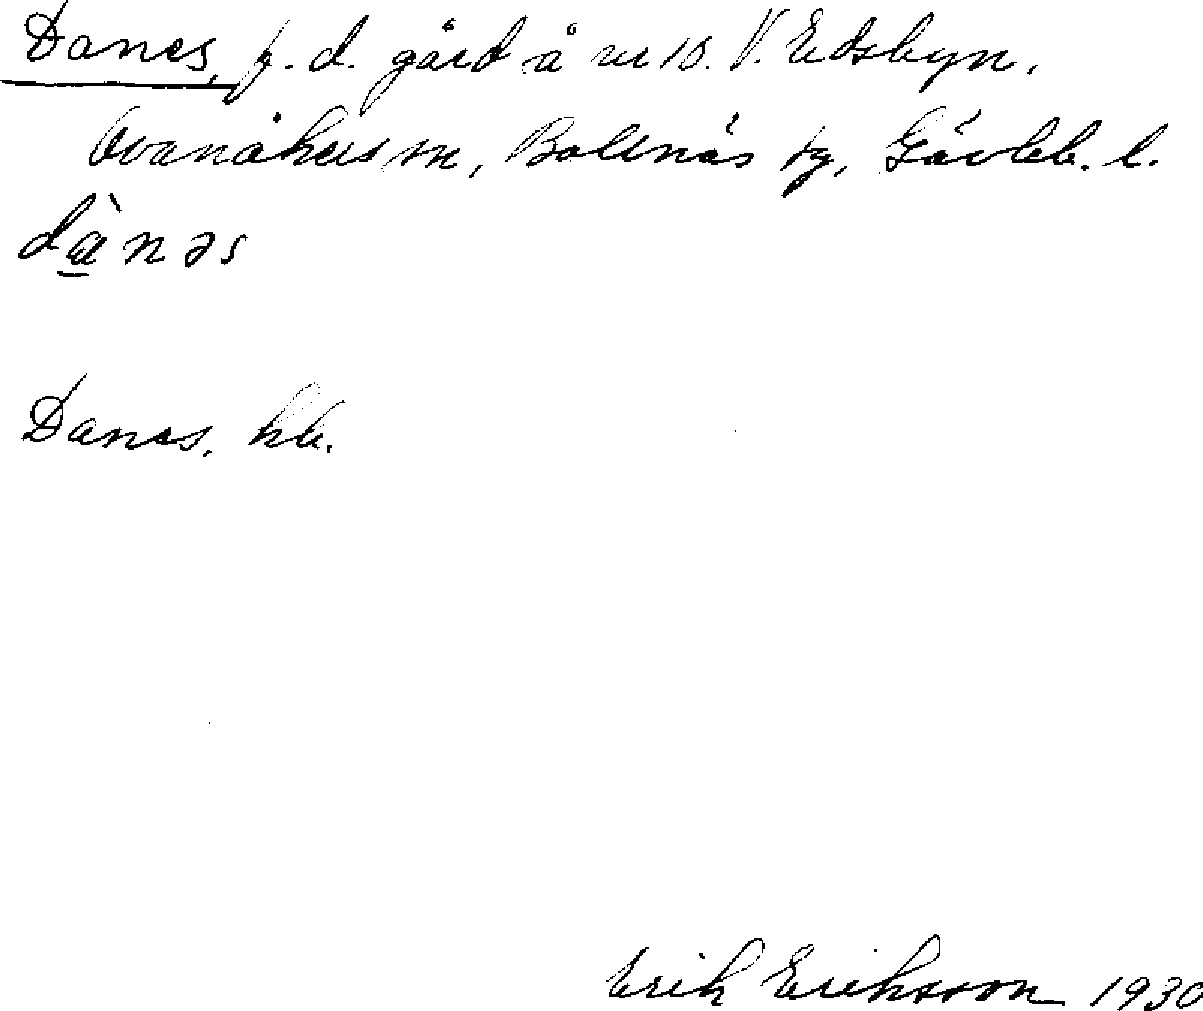 Danes, f. d. gård å nr 10. V. Edsbyn,
Ovanåkers sn, Bollnäs tg, Gävleb. l.
dànəs
Danes, kb.
Erik Eriksson 1930